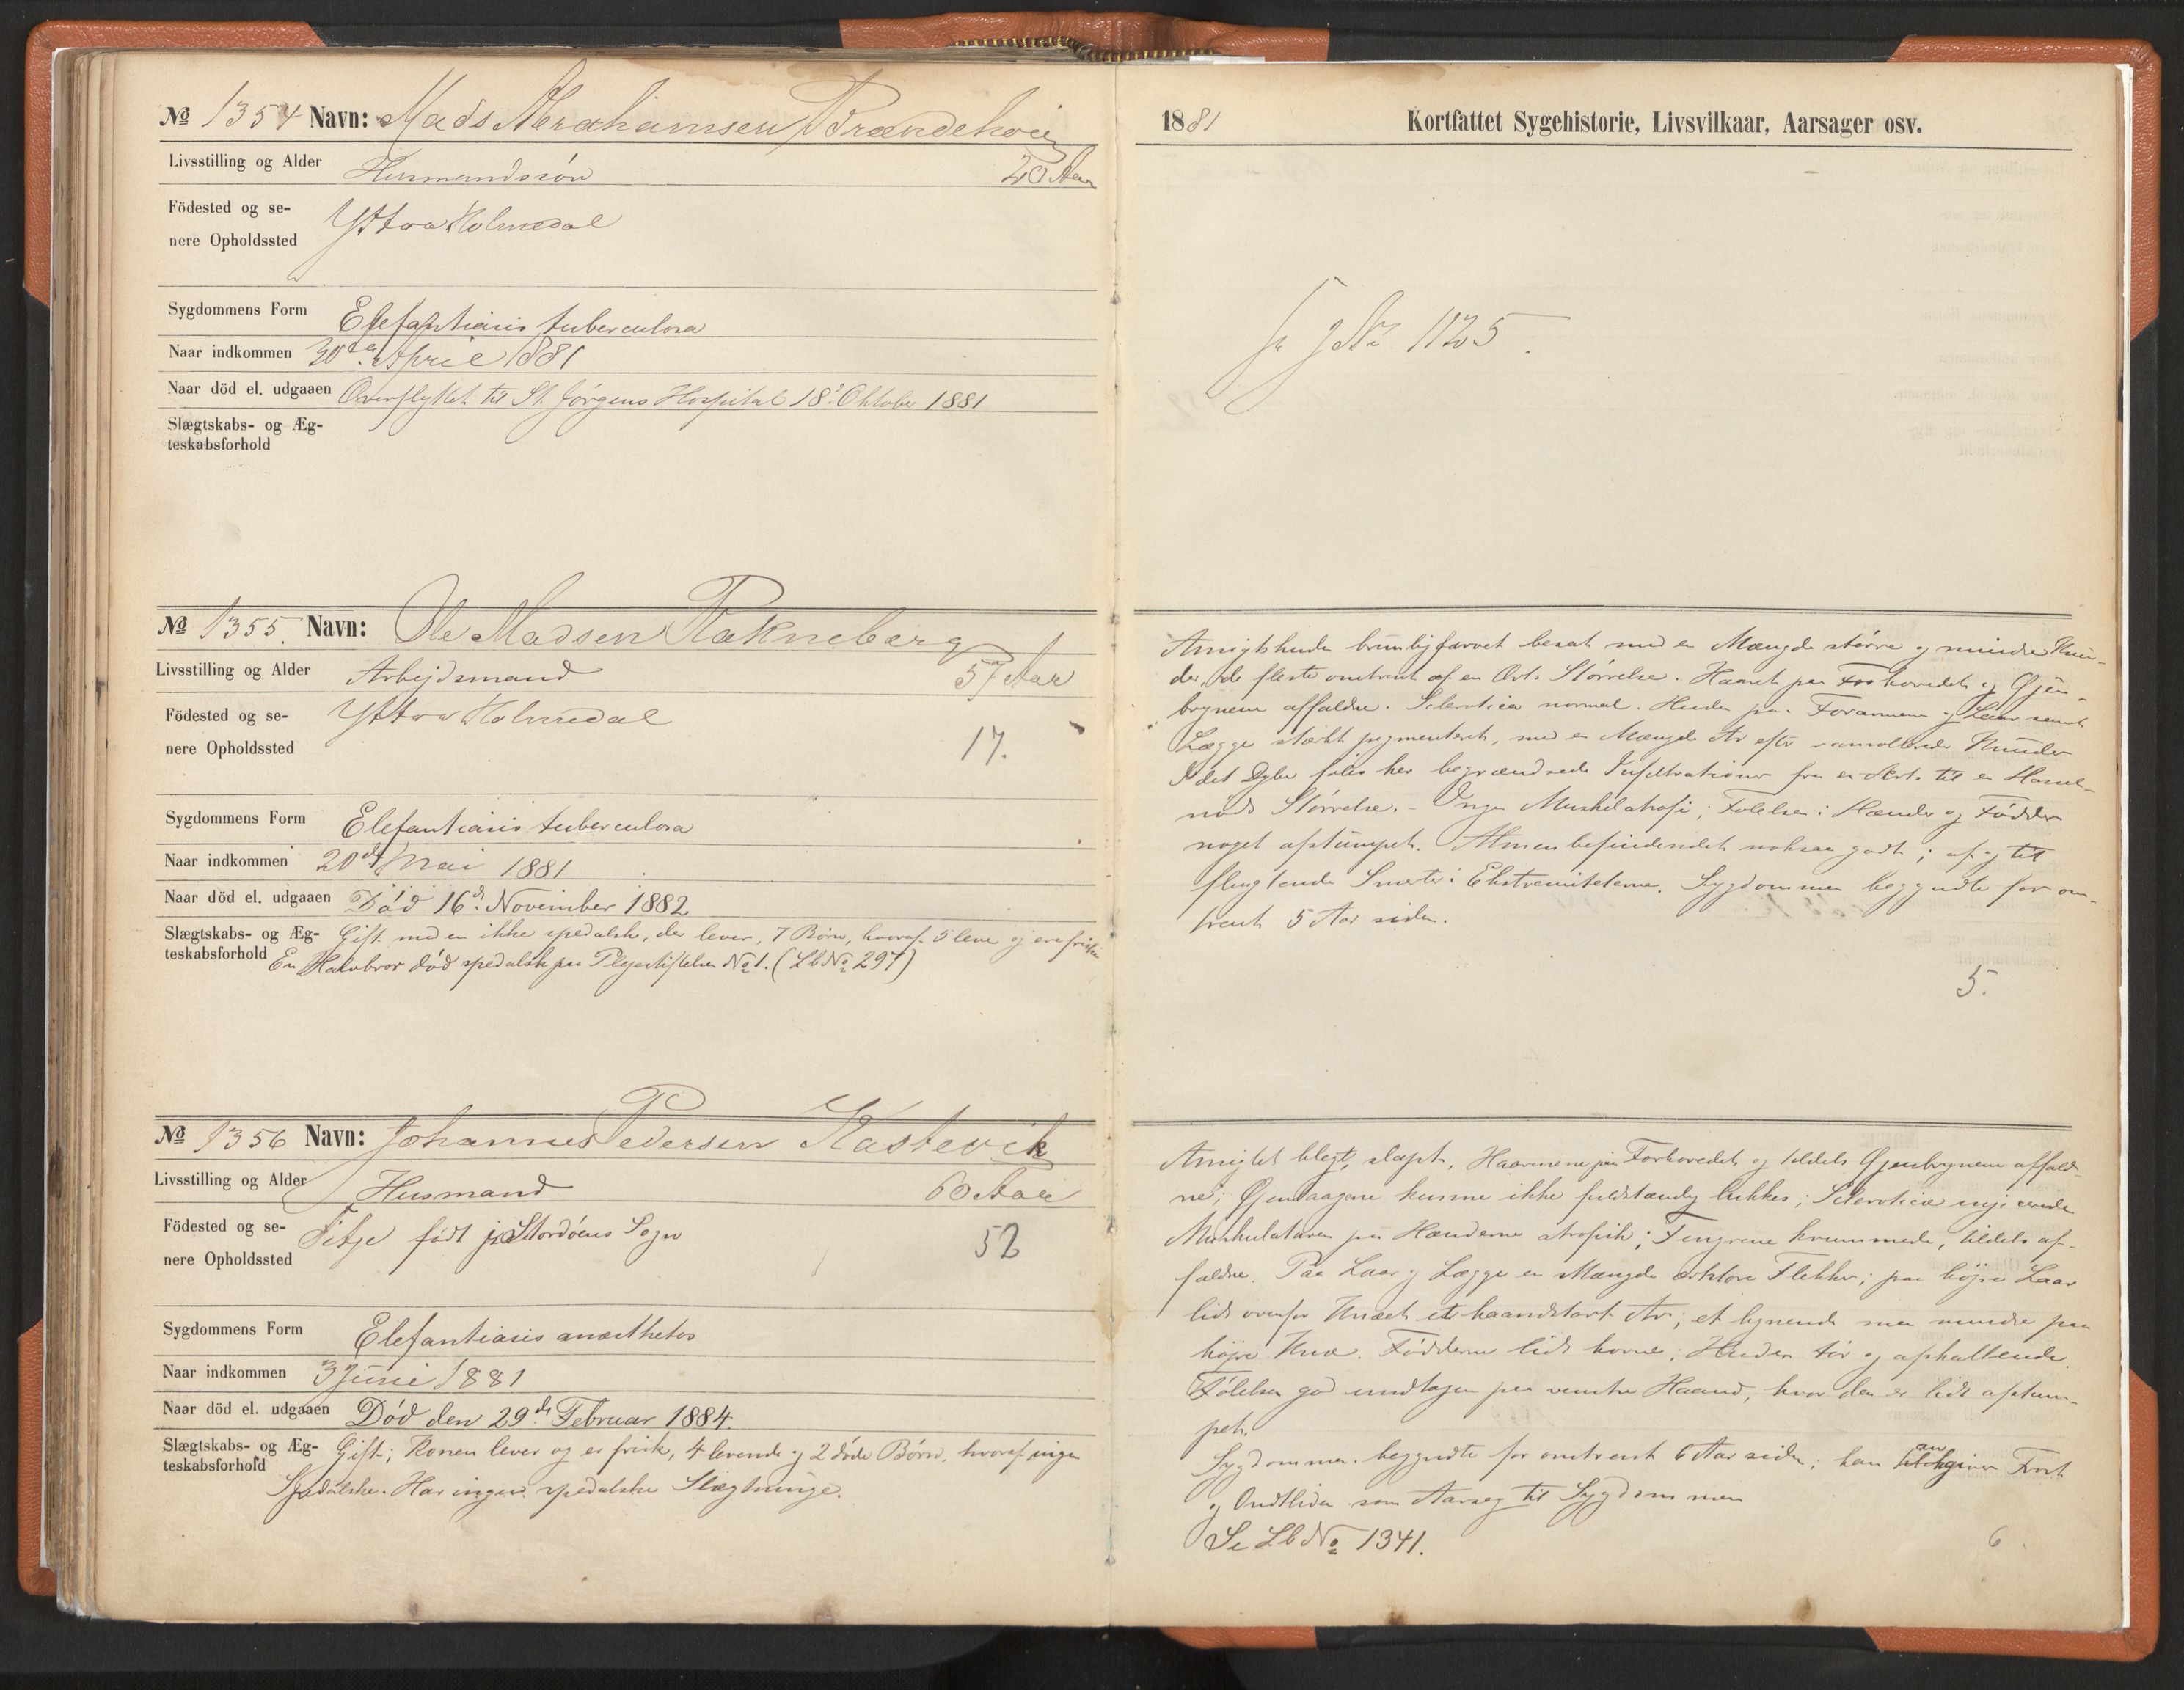 № 1354 Navn: Mads Abrahamsen Brændehoug
Livsstilling og Alder Husmandssön 20 Aar
Födested og se-
nere Opholdssted Yttre Holmedal
Sygdommens Form Elefantiasis tuberculosa
Naar indkommen 30te April 1881
Naar död el. udgaaen Overflyttet til St. Jørgens Hospital 18de Oktober 1881
Slægtskabs- og Æg-
teskabsforhold
№ 1355. Navn: Ole Madsen Rakneberg
Livsstilling og Alder Arbejdsmand 57 Aar
Födested og se- Yttre Holmedal
nere Opholdssted 17.
Sygdommens Form Elefantiasis tuberculosa
Naar indkommen 20de Mai 1881
Naar död el. udgaaen Död 16d. November 1882
Slægtskabs- og Æg- Gift med en ikke spedalsk, der lever, 7 Börn, hvoraf 5 leve og ere friske
teskabsforhold En Halvbror död spedalsk paa Plejestiftelsen No 1. (Lb No 297)
№ 1356 Navn: Johannes Pedersen Kastevik
Livsstilling og Alder Husmand 60 Aar
Födested og se- Fitje födt i Stordöens Sogn
nere Opholdssted 52
Sygdommens Form Elefantiasis anæsthetos
Naar indkommen 3 Juni 1881
Naar död el. udgaaen Död den 29de Februar 1884.
Slægtskabs- og Æg- Gift; Konen lever og er frisk, 4 levende og 2 döde Börn, hvoraf ingen
teskabsforhold Spedalske. Har ingen spedalske Slægtninge.
1881 Kortfattet Sygehistorie, Livsvilkaar, Aarsager osv.
No 1125.
Ansigtshuden brunligfarvet besat med en Mængde större og mindre Knu-
der, de fleste omtrent af en Ærts Störrelse. Haaret paa Forhovedet og Öjen-
brynene affaldne. Sclerotica normal. Huden paa Forarmene og Laar samt
Lægge stærkt pigmenteret, med en Mængde Ar efter Knuder
I det Dybe föles her begrændsede Infiltrationer fra en Ærts til en Hassel-
nöds Störrelse. - Ingen Muskelatrofi; Fölelsen i Hænder og Födder
noget afstumpet. Almenbefindendet noksaa godt; af og til
flygtende Smerter i Ekstremiteterne. Sygdommen begyndte for om-
trent 5 Aar siden.
5.
Ansigtet blegt, slapt, Haarene paa Forhovedet og tildels Öjenbrynene affald-
ne; Öjenlaagene kunne ikke fuldstændig lukkes; Sclerotica
Muskulaturen paa Hænderne atrofisk; Fingrene krummede, tildels af-
faldne. Paa Laar og Lægge en Mængde ærtstore Flekker; paa höjre Laar
lidt ovenfor Knæet et haandstort Ar; et lignende men mindre paa
höjre Knæ. Födderne lidt hovne; Huden tör og afskallende.
Fölelsen god undtagen paa venstre Haand, hvor den er lidt afstum-
pet.
Sygdommen begyndte for omtrent 6 Aar siden; han angiver Frost
og Ondtliden som Aarsag til Sygdommen
Se Lb No 1341.
6